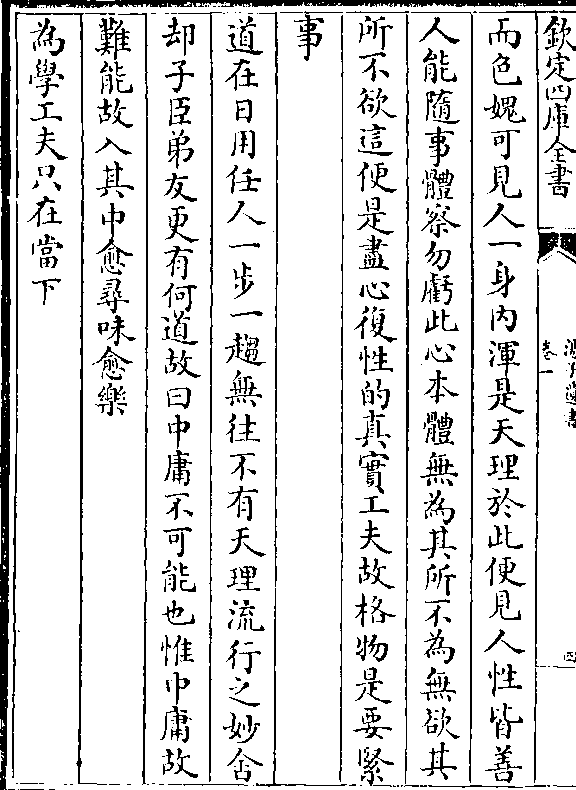 欽定四庫全書
卷一
四
而色媿可見人一身內渾是天理於此便見人性皆善
人能隨事體察勿虧此心本體無為其所不為無欲其
所不欲這便是盡心復性的真實工夫故格物是要緊
事
道在日用任人一步一趨無往不有天理流行之妙舍
却子臣弟友更有何道故曰中庸不可能也惟中庸故
難能故入其中愈尋味愈樂
為學工夫只在當下